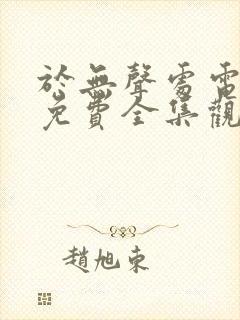 於無聲處電
免費全集觀
趙旭東